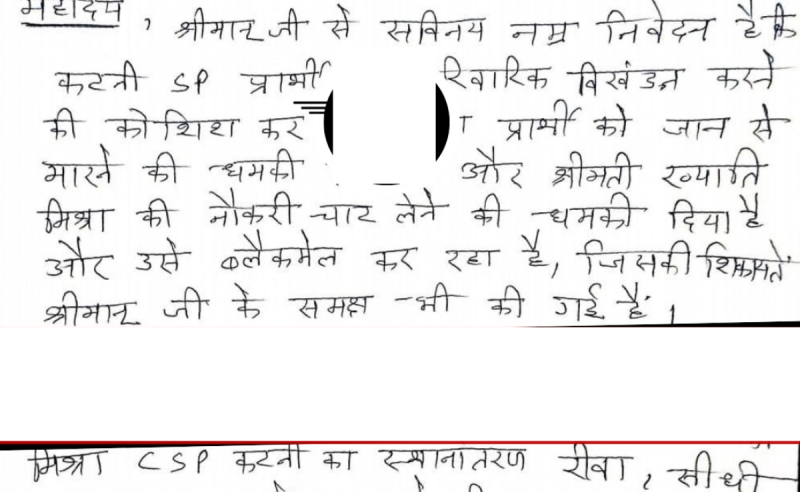 महोदय, श्रीमान् जी से सविनय नम्र निवेदन है कि
कटनी SP प्रार्थी रिवारिक विखंडन करने
की कोशिश कर प्रार्थी को जान से
मारने की धमकी और श्रीमती ख्याति
मिश्रा की नौकरी चाट लेने की धमकी दिया है
और उसे ब्लैकमेल कर रहा है, जिसकी शिकायतें
श्रीमान् जी के समक्ष भी की गई हैं।
मिश्रा CSP कटनी का स्थानातरण रीवा, सीधी